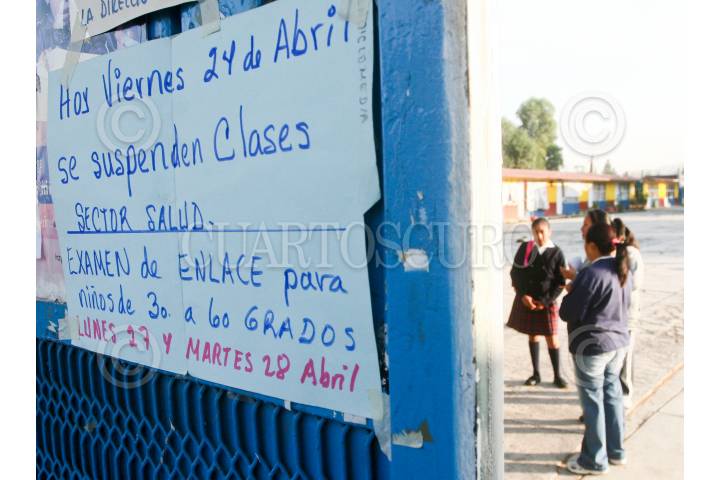 LA DIRECCIÓ
Hoy Viernes 24 de Abril
se suspenden Clases
SECTOR SALUD.
EXAMEN de ENLACE para
niños de 3o. a 6o GRADOS
LUNES 27 Y MARTES 28 Abril
CUARTOSCURO